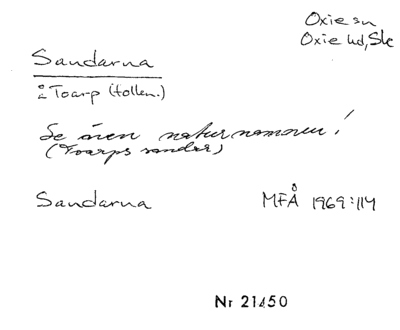 Oxie sn
Oxie hd, Sk
Sandarna
å Toarp (tollen.)
Se även naturnamnen!
(Toarps sandar)
Sandarna MFÅ 1969:114
Nr 21450